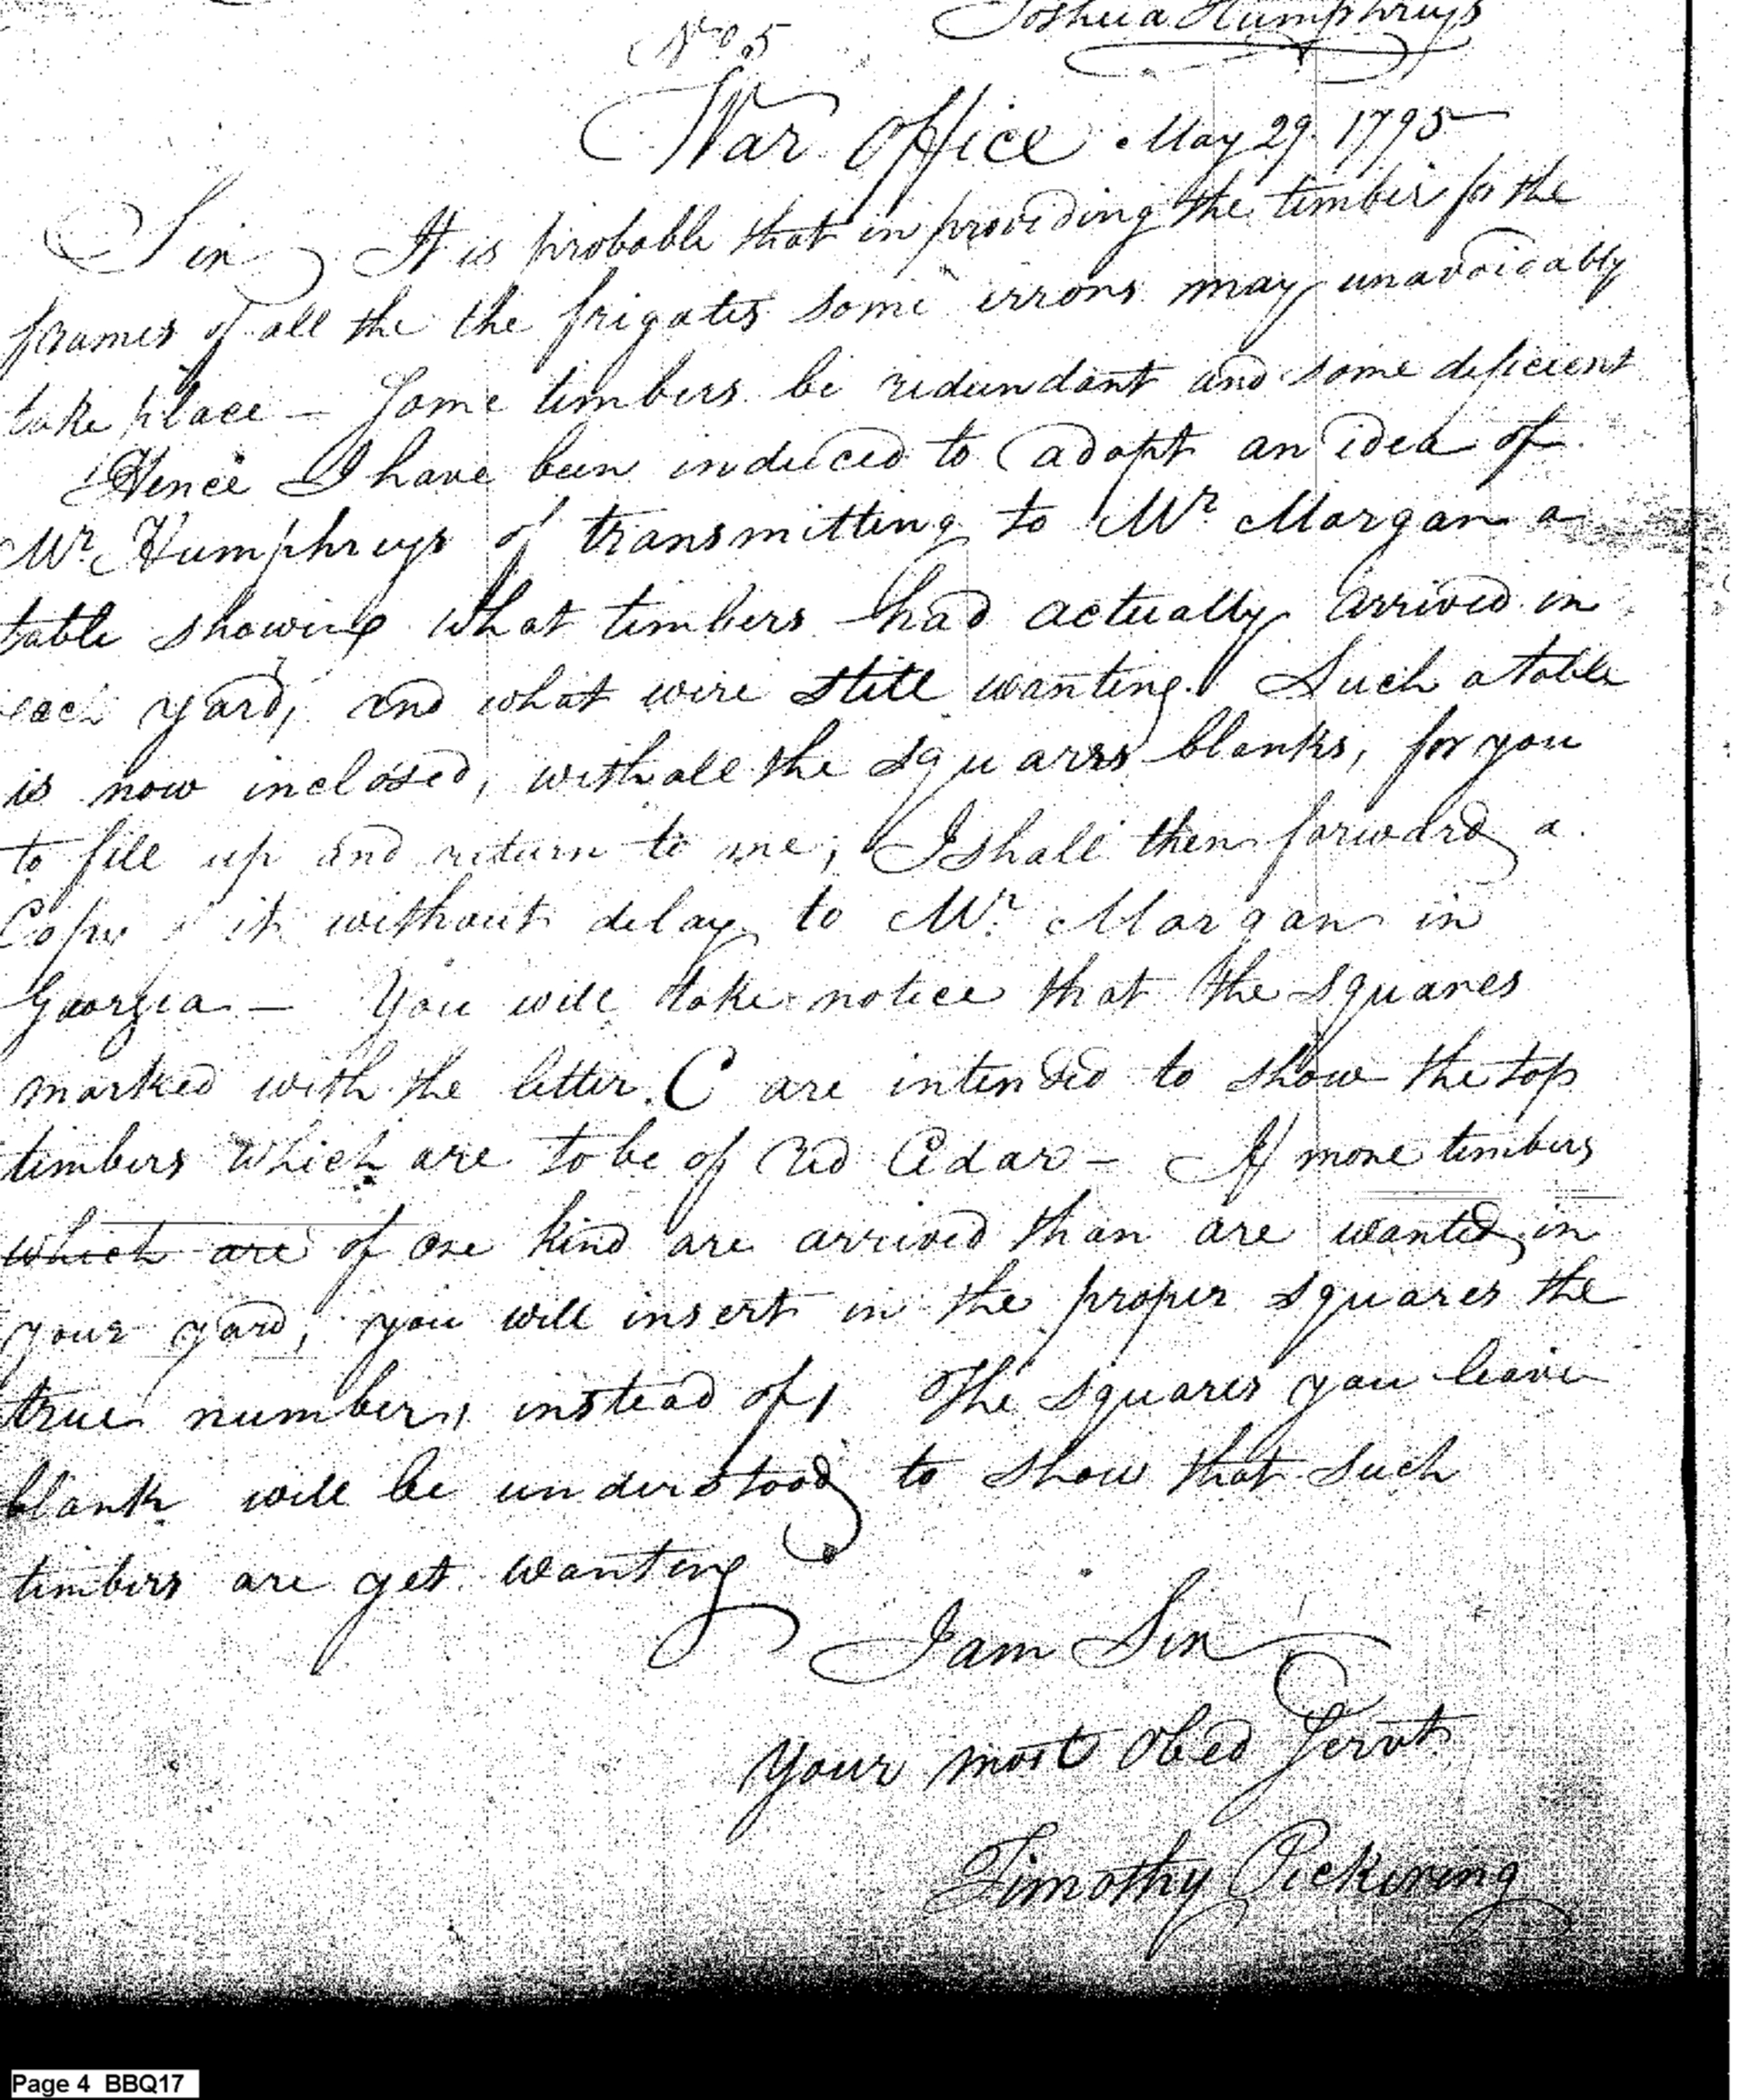 Joshua Humphreys
No. 5
War Office May 29. 1795
Sir It is probable that in providing the timber for the
frames of all the the frigates some errors may unavoidably
take place — Some timbers be redundant and some deficient
Hence I have been induced to adopt an idea of
Mr. Humphreys of transmitting to Mr. Morgan a
table showing what timbers had actually arrived in
each yard, and what were still wanting. Such a table
is now inclosed, with all the squares blanks, for you
to fill up and return to me; I shall then forward a
Copy of it without delay to Mr. Morgan in
Georgia — You will take notice that the squares
marked with the letter C are intended to show the top
timbers which are to be of Red Cedar — If more timbers
which are of one kind are arrived than are wanted in
your yard, you will insert in the proper squares the
true number, instead of 1 The squares you leave
blank will be understood to show that such
timbers are yet wanting
I am Sir
Your most Obed Servt
Timothy Pickering
Page 4 BBQ17